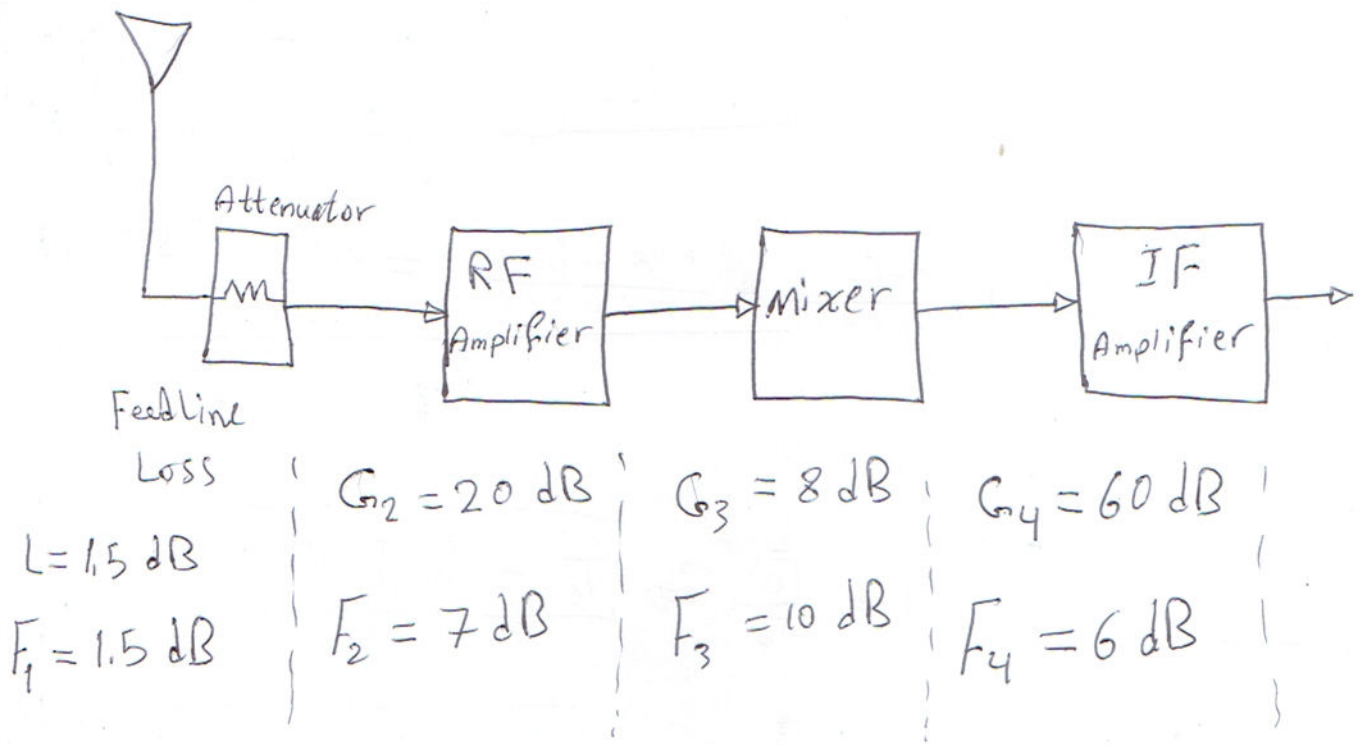 Attenuator
RF
Amplifier
Mixer
IF
Amplifier
Feedline
Loss
L=1.5 dB
F₁ = 1.5 dB
G₂ = 20 dB
F₂ = 7 dB
G₃ = 8 dB
F₃ = 10 dB
G₄ = 60 dB
F₄ = 6 dB